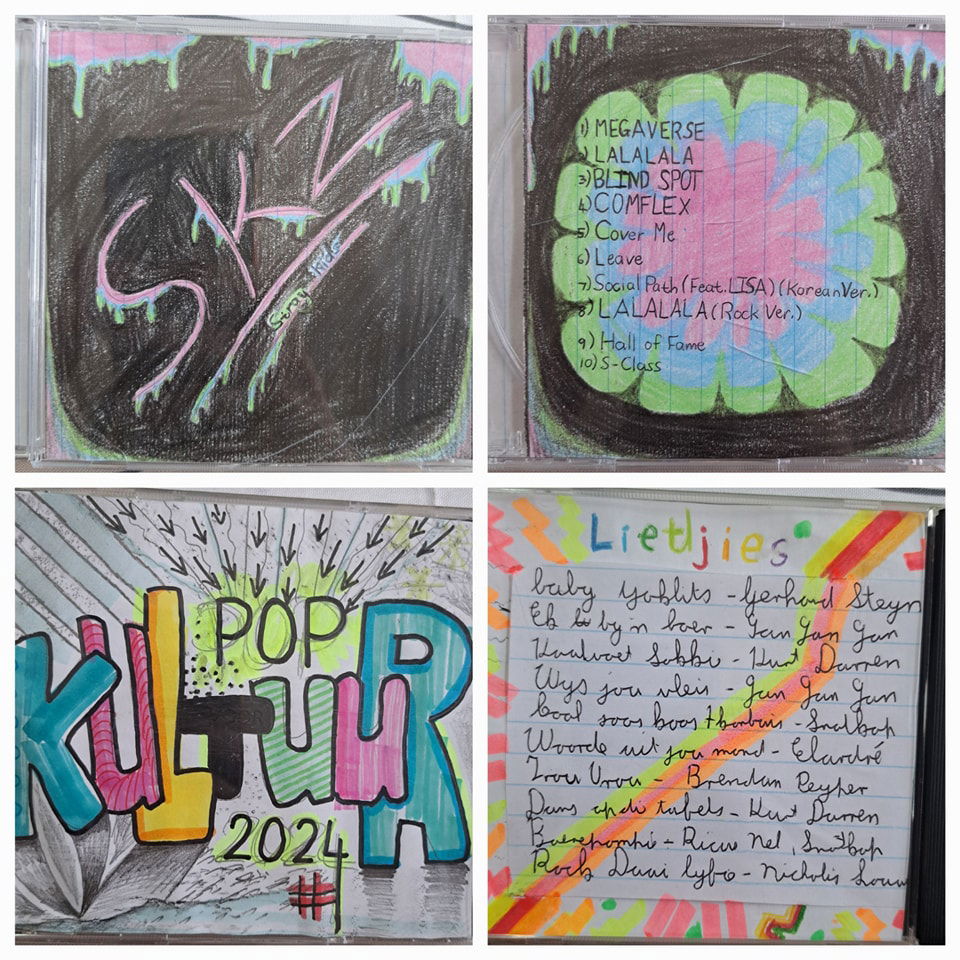 SKZ
Stray Kids
1) MEGAVERSE
2) LALALALA
3) BLIND SPOT
4) COMFLEX
5) Cover Me
6) Leave
7) Social Path (Feat. LISA) (Korean Ver.)
8) LALALALA (Rock Ver.)
9) Hall of Fame
10) S-Class
POP
KULTUUR
2024
#1
Lietljies
baby - Gerhard Steyn
Ek by 'n boer - Jan Jan Jan
Kaalvoet Sokki - Kurt Darren
Wys jou vleis - Jan Jan Jan
soos - Snotkop
Woorde uit jou mond - Elardré
Vrou Vrou - Brendan Peyper
Dans op die tafels - Kurt Darren
- Ricus Nel, Snotkop
Rock Daai lyfie - Nicholis Louw